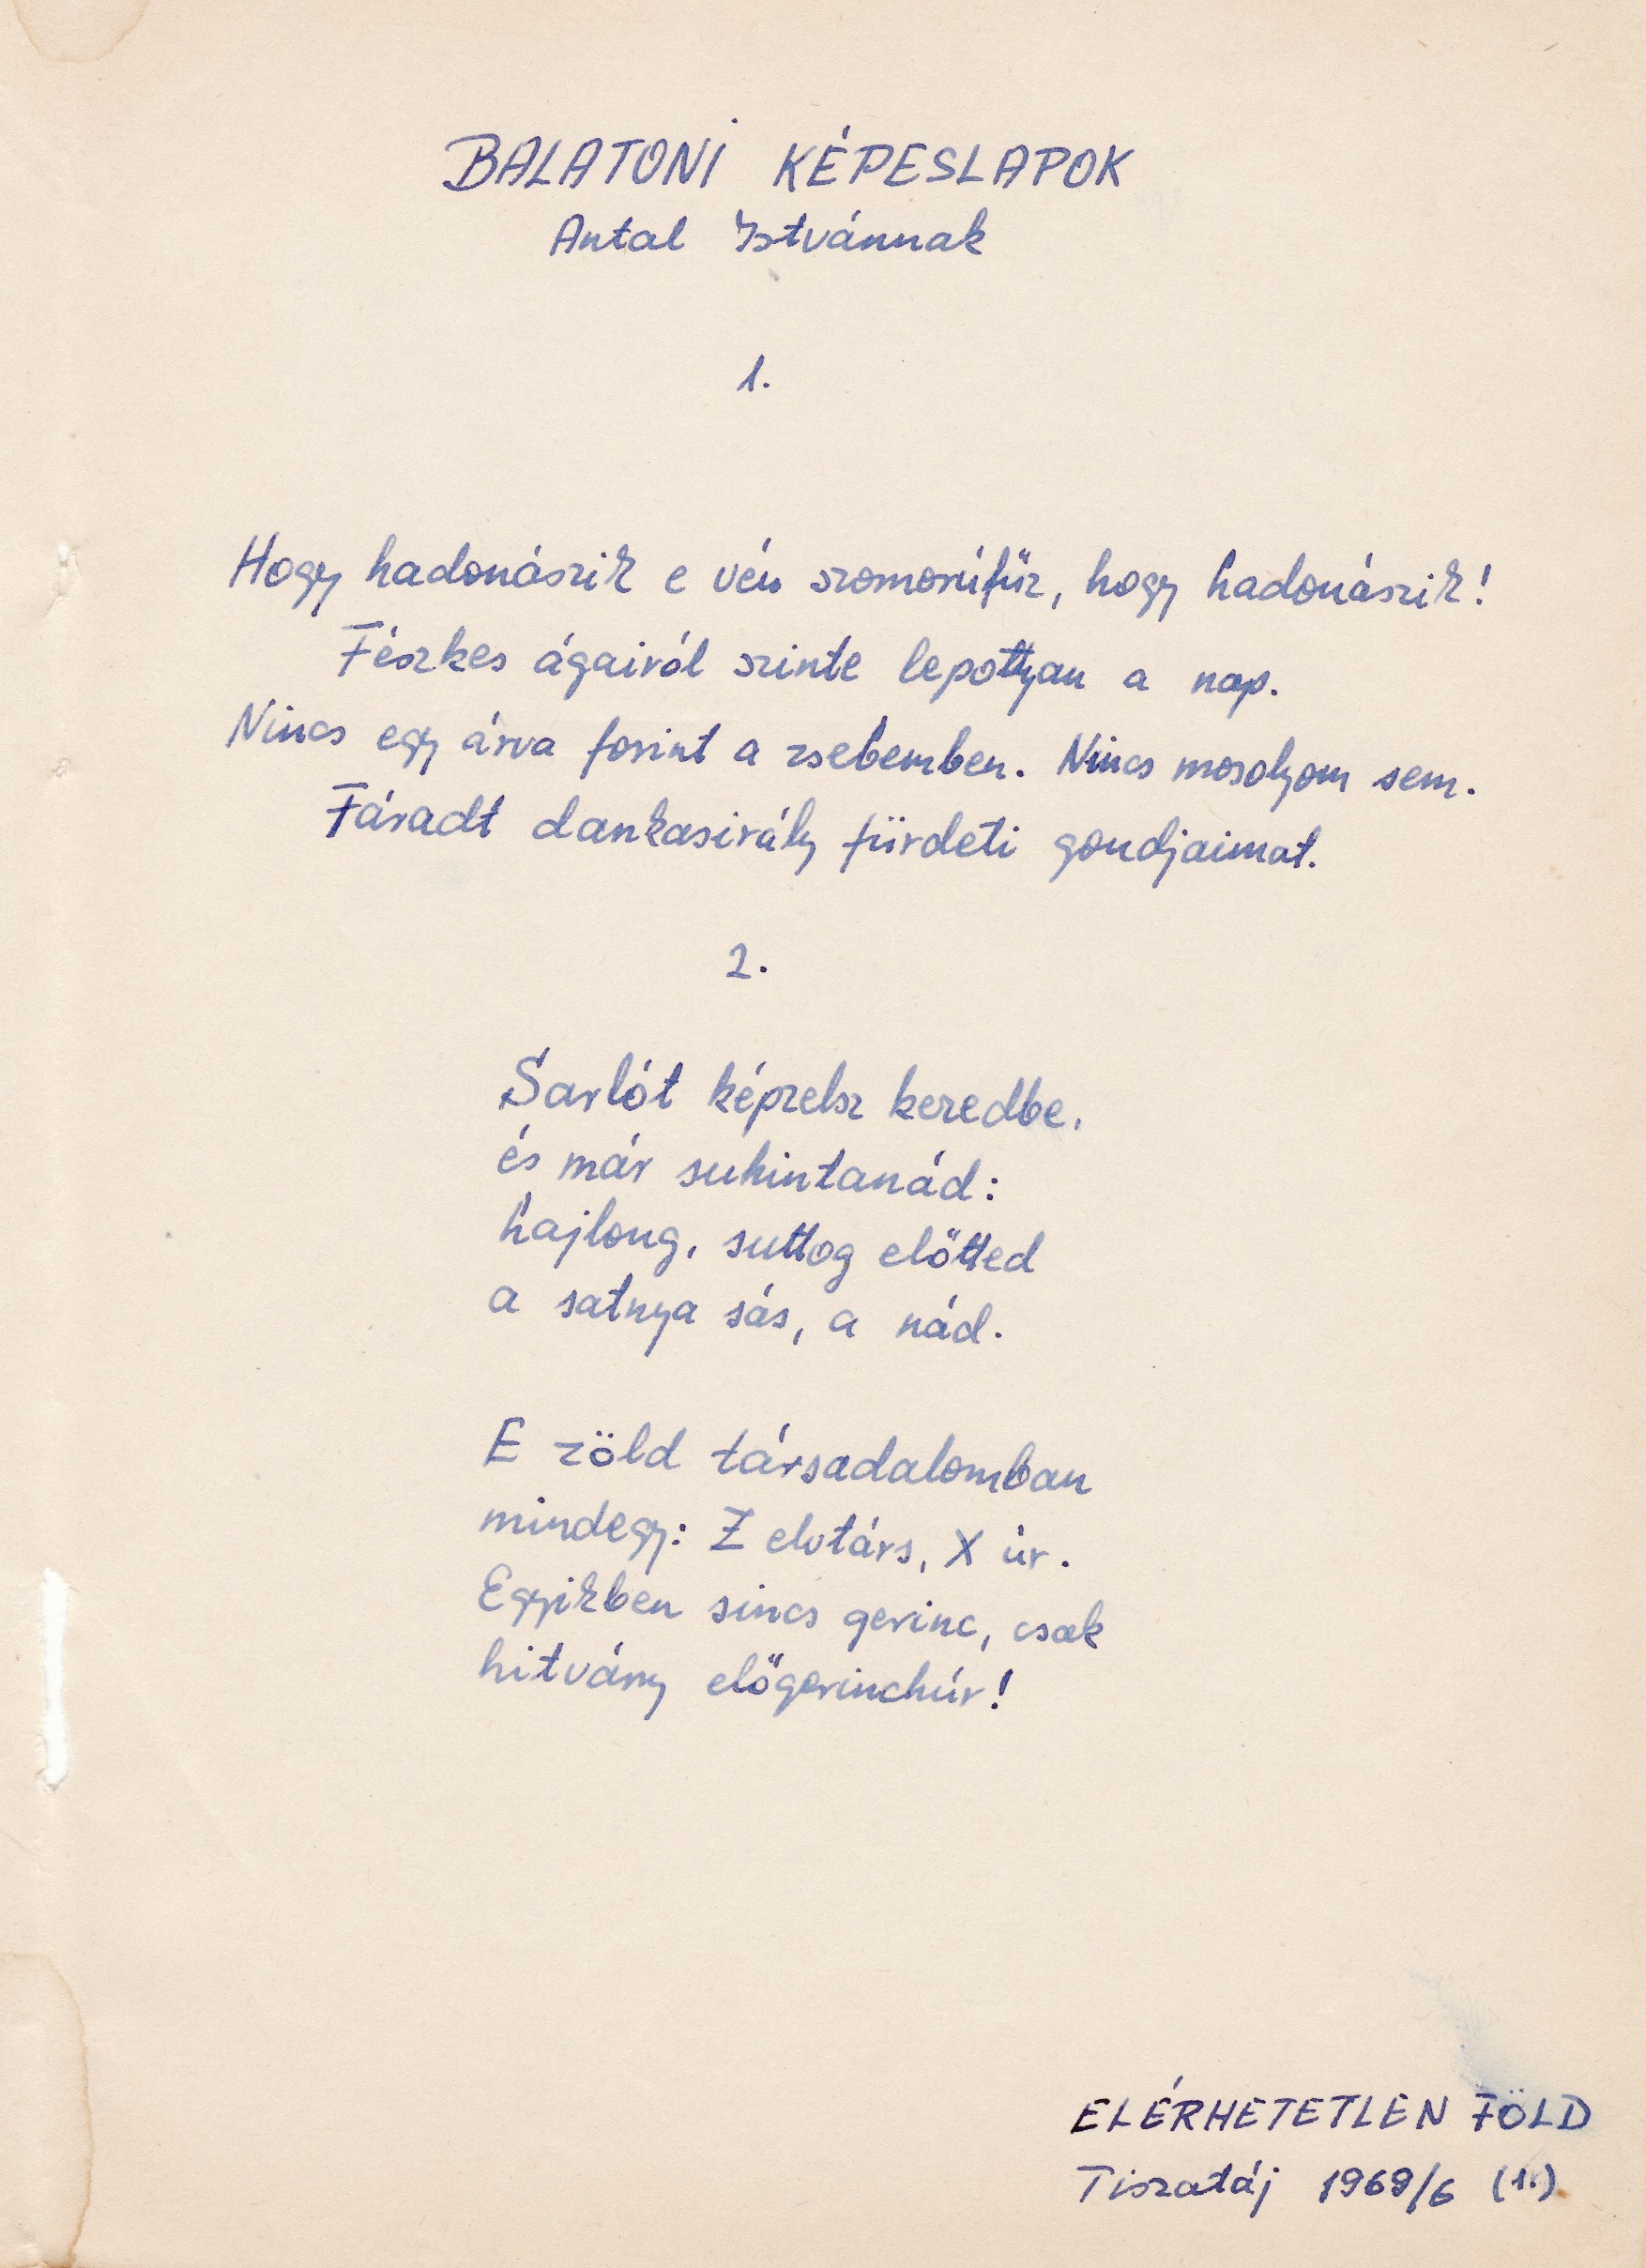 BALATONI KÉPESLAPOK
Antal Istvánnak
1.
Hogy hadonászik e vén szomorúfűz, hogy hadonászik!
Fészkes ágairól szinte lepottyan a nap.
Nincs egy árva forint a zsebemben. Nincs mosolyom sem.
Fáradt dankasirály fürdeti gondjaimat.
2.
Sarlót képzelsz kezedbe,
és már suhintanád:
hajlong, suttog előtted
a satnya sás, a nád.
E zöld társadalomban
mindegy: Z elvtárs, X úr.
Egyikben sincs gerinc, csak
hitvány előgerinchúr!
ELÉRHETETLEN FÖLD
Tiszatáj 1969/6 (1.)